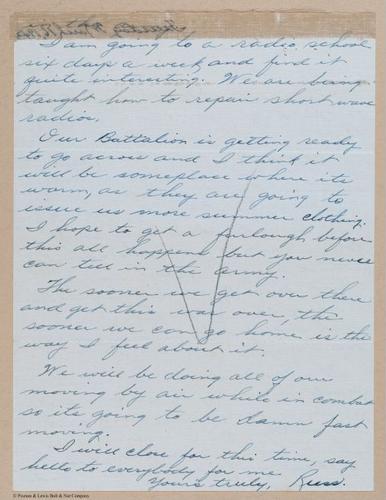 I am going to a radio school
six days a week and find it
quite interesting. We are being
taught how to repair short wave
radios.
Our Battalion is getting ready
to go across and I think it
will be someplace where its
warm, as they are going to
issue us more summer clothing.
I hope to get a furlough before
this all happens but you never
can tell in the army.
The sooner we get over there
and get this war over, the
sooner we can go home is the
way I feel about it.
We will be doing all of our
moving by air while in combat
so its going to be damn fast
moving.
I will close for this time, say
hello to everybody for me.
Yours truly, Russ.
© Pearson & Lewis Bolt & Nut Company